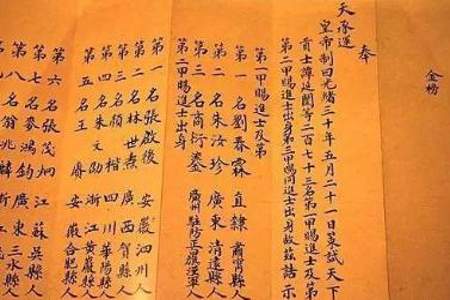 金榜
奉
天承運
皇帝制曰光緒三十年五月二十一日策試天下
貢士譚延闓等二百七十三名第一甲賜進士及第
第二甲賜進士出身第三甲賜同進士出身故茲誥示
第一甲賜進士及第
第一名劉春霖 直隸肅甯縣人
第二名朱汝珍 廣東清遠縣人
第三名商衍鎏 廣州駐防正白旗漢軍
第二甲賜進士出身
第一名張啟後 安徽泗州人
第二名林世焘 廣西賀縣人
第三名顏楷 四川華陽縣人
第四名朱文劭 浙江黃巖縣人
第五名王賡 安徽合肥縣人
第六名張茂炯 江蘇吳縣人
第七名麥鴻鈞 廣東三水縣人
第八名翁兆麟